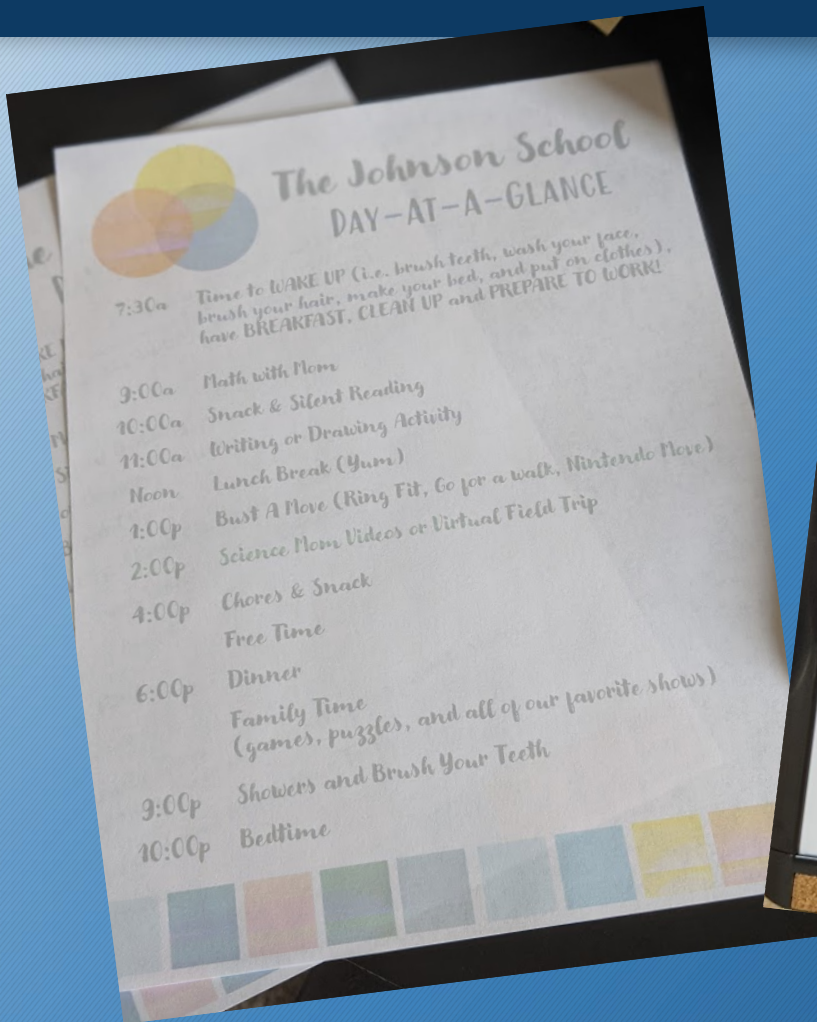 The Johnson School
DAY-AT-A-GLANCE
7:30a Time to WAKE UP (i.e. brush teeth, wash your face,
brush your hair, make your bed, and put on clothes),
have BREAKFAST, CLEAN UP and PREPARE TO WORK!
9:00a Math with Mom
10:00a Snack & Silent Reading
11:00a Writing or Drawing Activity
Noon Lunch Break (Yum)
1:00p Bust A Move (Ring Fit, Go for a walk, Nintendo Move)
2:00p Science Mom Videos or Virtual Field Trip
4:00p Chores & Snack
Free Time
6:00p Dinner
Family Time
(games, puzzles, and all of our favorite shows)
9:00p Showers and Brush Your Teeth
10:00p Bedtime